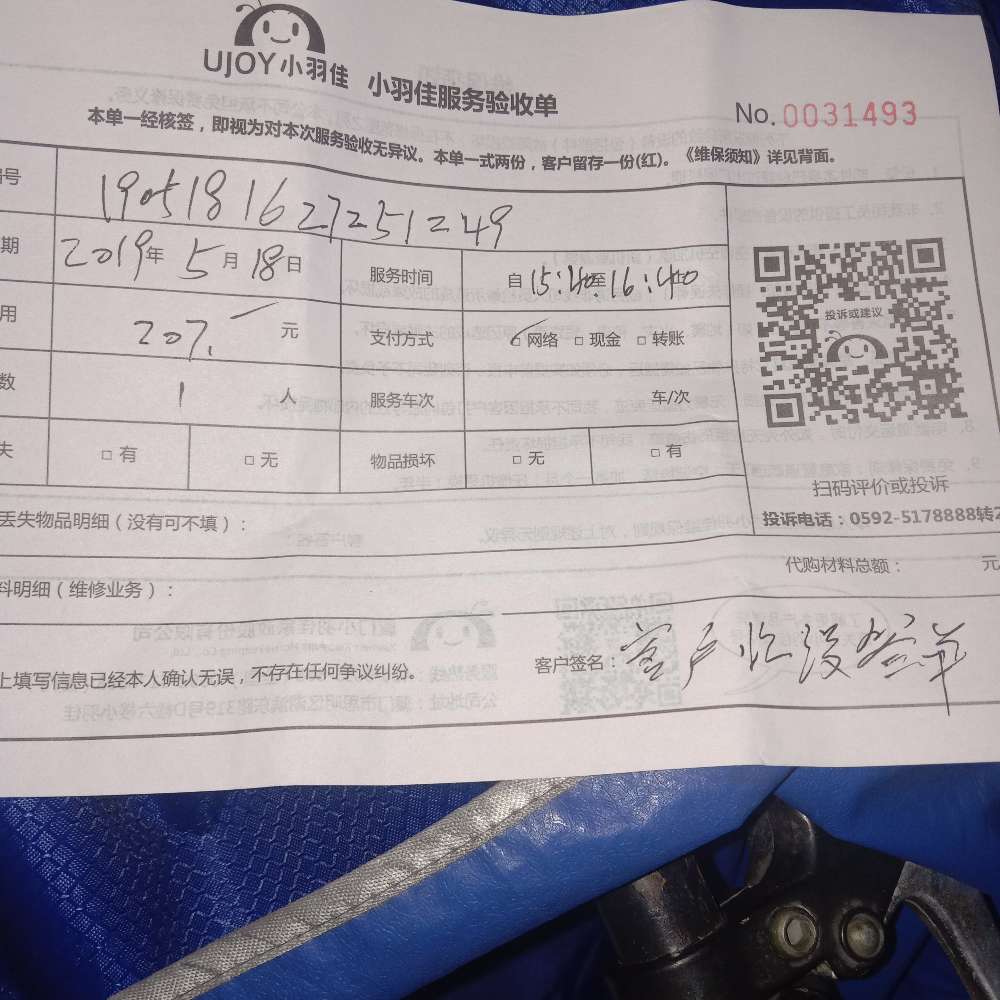 UJOY小羽佳 小羽佳服务验收单
No.0031493
本单一经核签，即视为对本次服务验收无异议。本单一式两份，客户留存一份(红)。《维保须知》详见背面。
号 1905181627251249
期 2019年 5月 18日 服务时间 自15:40至16:40
用 207. 元 支付方式 网络 □ 现金 □ 转账
数 1 人 服务车次 车/次
失 □ 有 □ 无 物品损坏 □ 无 □ 有
投诉或建议
扫码评价或投诉
投诉电话：0592-5178888转2
丢失物品明细（没有可不填）：
代购材料总额： 元
料明细（维修业务）：
上填写信息已经本人确认无误，不存在任何争议纠纷。 客户签名：客户临没签单